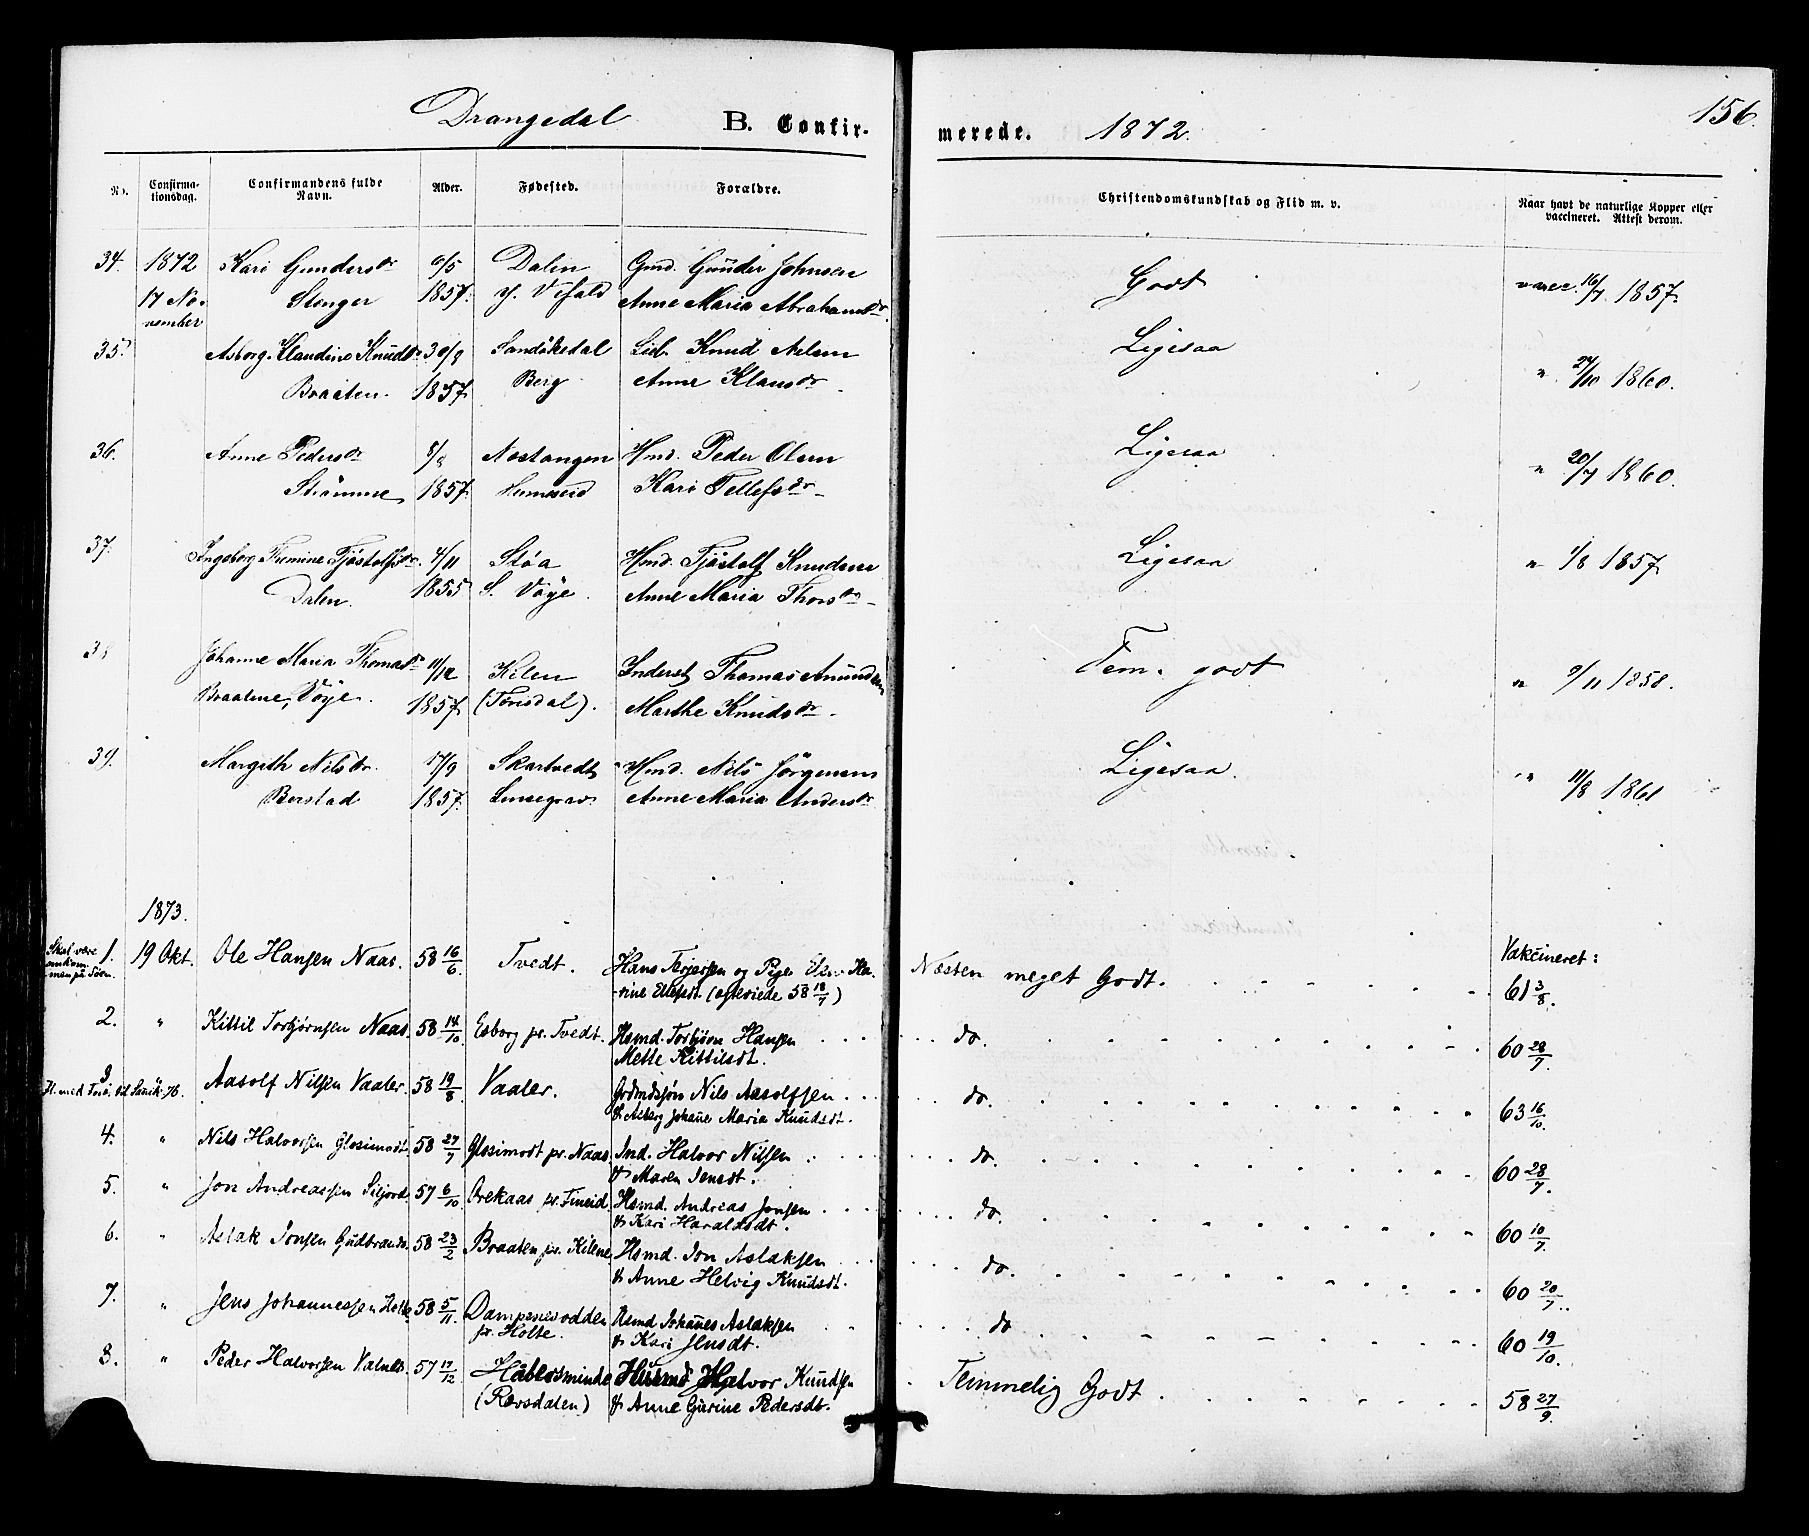 Drangedal B. Confirmerede. 1872. 156.
No. Confirmationsdag. Confirmandens fulde Navn. Alder. Fødested. Forældre. Christendomskundskab og Flid m. v. Naar havt de naturlige Kopper eller vaccineret. Attest derom.
34. 1872 Kari Gundersdr 6/5 Dalen Gmd. Gunder Johnsen Godt vacc. 16/7 1857.
17 No- Stenger 1857. y. Vefald Anne Maria Abrahamsdr.
vember
35. Asborg Klandine Knudsdr 30/8 Sandökedal Knud Nelsen Ligesaa " 27/10 1860.
Braaten. 1857 Berg Anne Klausdr
36. Anne Pedersdr 8/8 Næstangen Hmd. Peder Olsen Ligesaa " 20/7 1860.
Strömme 1857. Henneseid Kari Tellefsdr
37. Ingeborg Tjöstolfsdr. 4/11 Støa Hmd. Tjöstolf Knudsen Ligesaa " 1/8 1857
Dalen. 1855 S. Vöje. Anne Maria Thorsdr
38 Johanne Maria Thomasdr 11/12 Kilen Inderst Thomas Amundsen Tem. godt " 9/11 1858.
Braatene, Vöje. 1857 (Törisdal). Marthe Knudsdr.
39. Margith Nilsdr. 17/9 Skartvedt Hmd. Nils Jörgensen Ligesaa. " 11/8 1861
Berstad 1857. Anne Maria Andersdr
1873.
Skal være omkommen på Søen. 1. 19 Okt. Ole Hansen Naas. 58 16/6 Tvedt. Hans Terjersen og Pige Ka- Næsten meget Godt. Vakcineret: 61 3/8.
rine Ellefsdt. (58 18/7)
2. " Kittil Torbjørnsen Naas. 58 14/10 Esborg pr. Tvedt. Hsmd. Torbjørn Hansen do. 60 28/7.
Mette Kittilsdt.
3 Aasolf Nilsen Vaaler. 58 19/8 Vaaler. Grdmdssøn Nils Aasolfsen do. 63 16/10.
& Asberg Johane Maria Knudsdt.
4. " Nils Halvorsen Glosimodt. 58 27/7 Glosimodt pr. Naas. Ind. Halvor Nilsen do. 60 28/7.
& Maren Jensdt.
5. " Jon Andreassen Siljord. 57 6/10 Orekaas pr. Fineid. Hsmd. Andreas Jonsen do. 60 10/7.
& Kari Haraldsdt.
6. " Aslak Jonsen Gudbrands. 58 23/2 Braaten pr. Kilene. Hsmd. Jon Aslaksen do. 60 20/7.
& Anne Helvig Knudsdt.
7. " Jens Johannessen Holte. 58 5/11 Dampenesodden Hsmd Johanes Aslaksen do. 60 19/10.
pr. Holte. & Kari Jensdt.
8. " Peder Halvorsen Valnes. 57 17/12 Håbetsminde Husmd Halvor Knudsen Temmelig Godt. 58 27/9.
(Rørsdalen) & Anne Gurine Pedersdt.